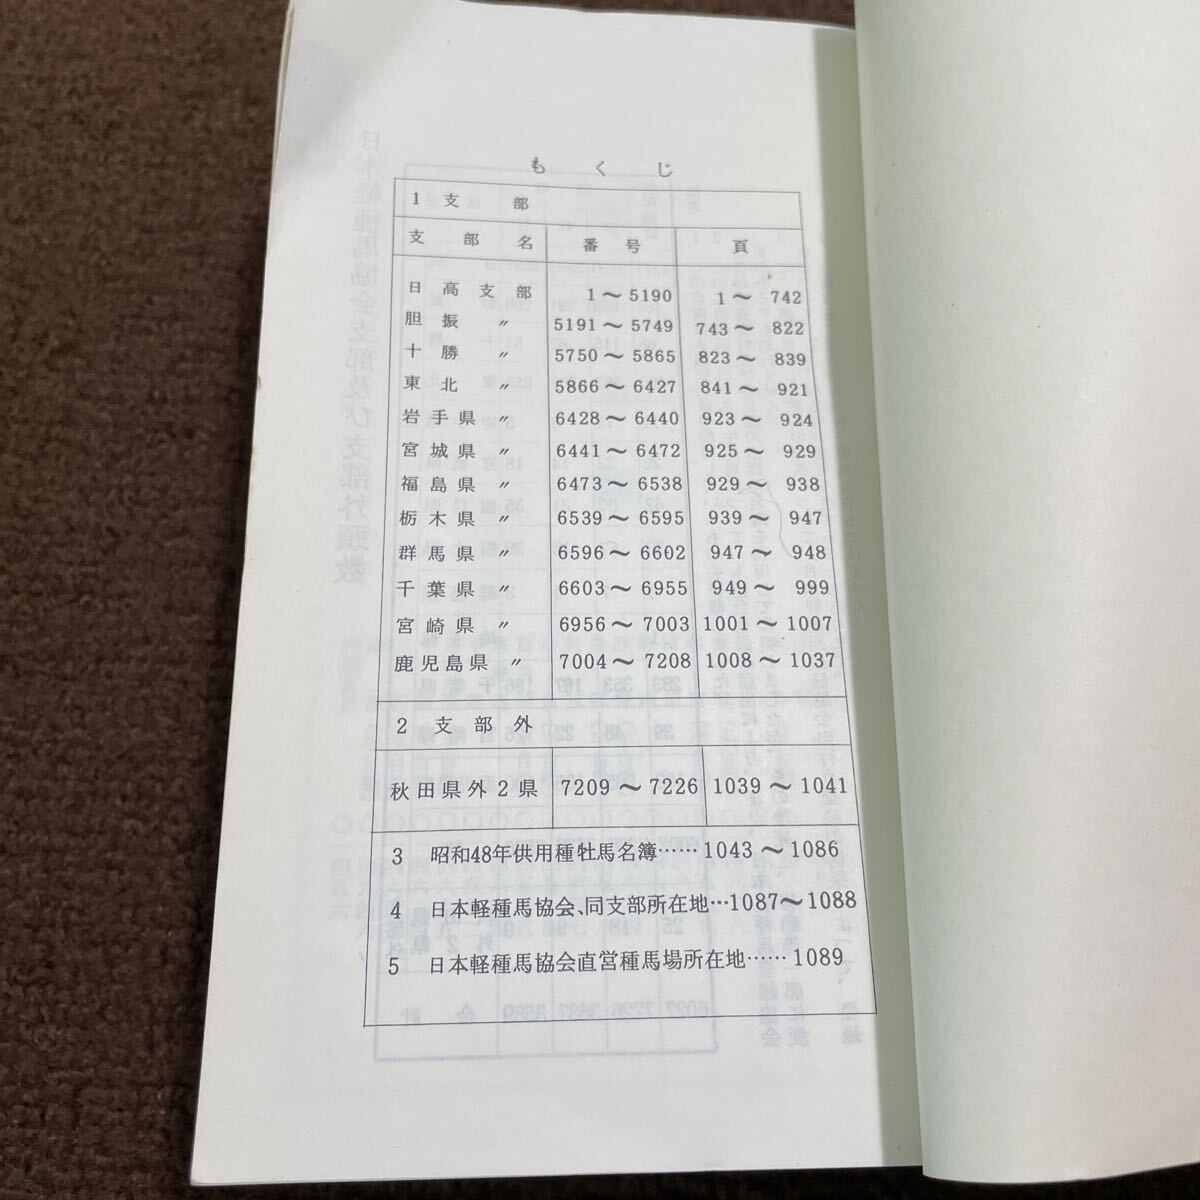 もくじ
1 支部
支部名 番号 頁
日高支部 1〜5190 1〜742
胆振 〃 5191〜5749 743〜822
十勝 〃 5750〜5865 823〜839
東北 〃 5866〜6427 841〜921
岩手県 〃 6428〜6440 923〜924
宮城県 〃 6441〜6472 925〜929
福島県 〃 6473〜6538 929〜938
栃木県 〃 6539〜6595 939〜947
群馬県 〃 6596〜6602 947〜948
千葉県 〃 6603〜6955 949〜999
宮崎県 〃 6956〜7003 1001〜1007
鹿児島県 〃 7004〜7208 1008〜1037
2 支部外
秋田県外2県 7209〜7226 1039〜1041
3 昭和48年供用種牡馬名簿……1043〜1086
4 日本軽種馬協会、同支部所在地…1087〜1088
5 日本軽種馬協会直営種馬場所在地……1089